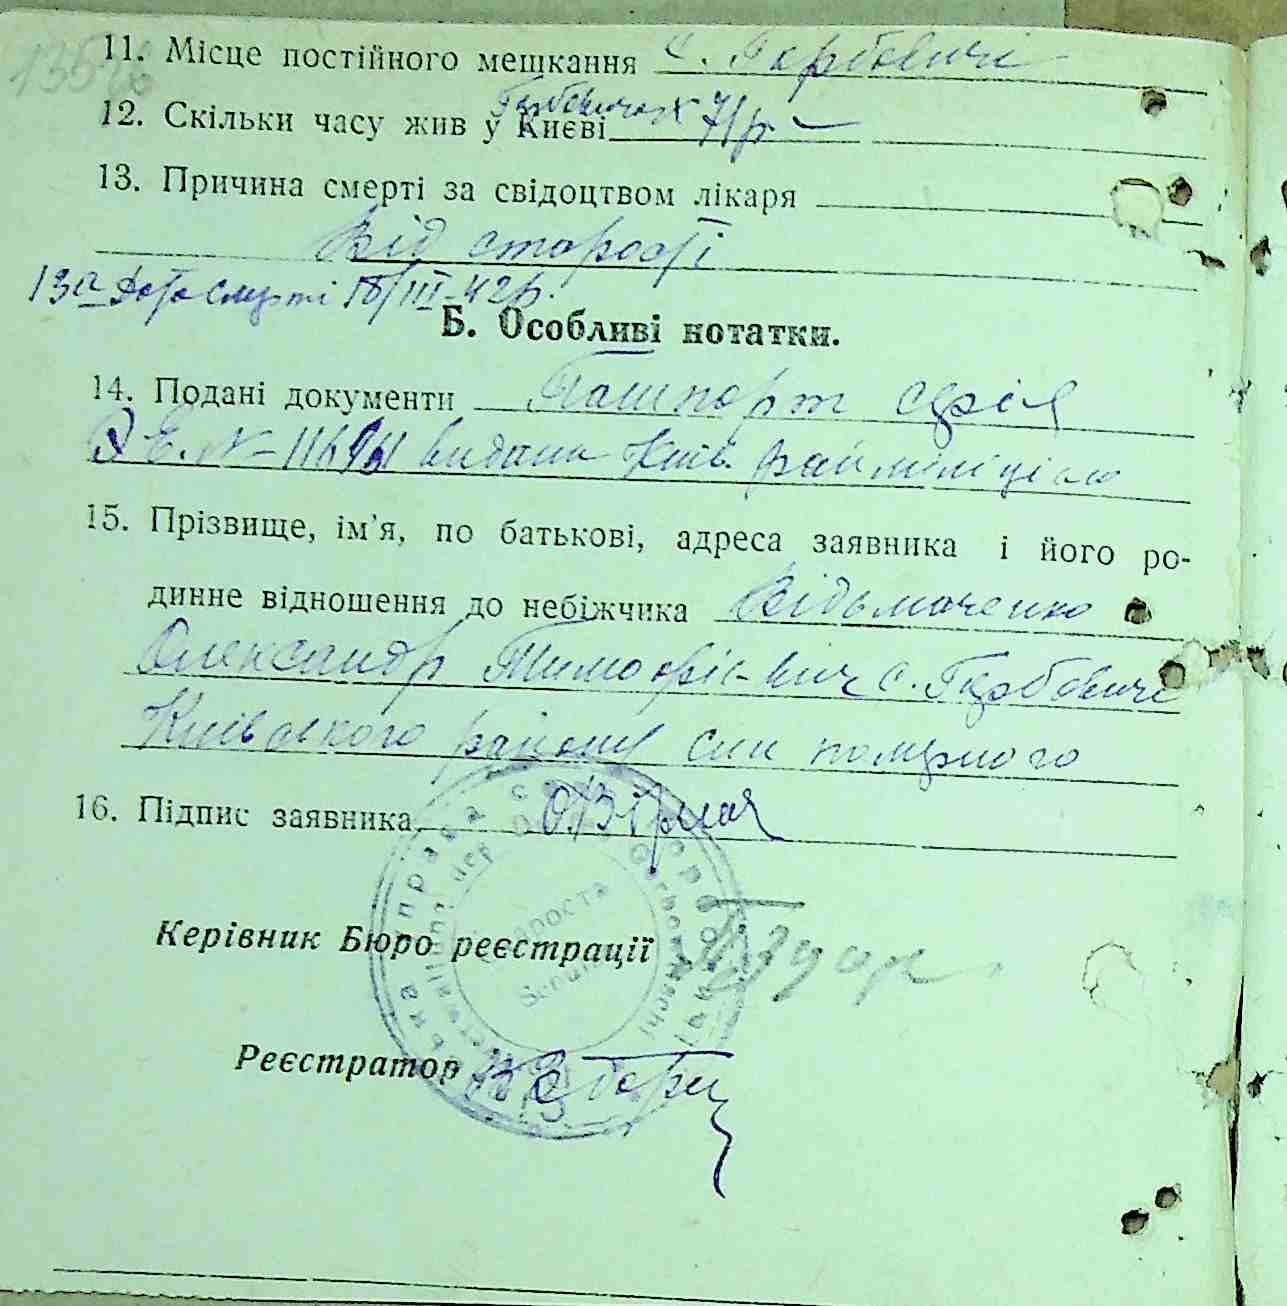 11. Місце постійного мешкання с. Горбовичі
12. Скільки часу жив у Києві Горбовичах 71 р.
13. Причина смерті за свідоцтвом лікаря
Від старості
13а Дата смерті 18/III-42 р.
Б. Особливі нотатки.
14. Подані документи Пашпорт серія
Е. № видана Київ. райміліцією
15. Прізвище, ім'я, по батькові, адреса заявника і його ро-
динне відношення до небіжчика Відьмаченко
Олександр Тимофіє-вич с. Горбовичі
Київського району син померлого
16. Підпис заявника
Керівник Бюро реєстрації
Реєстратор